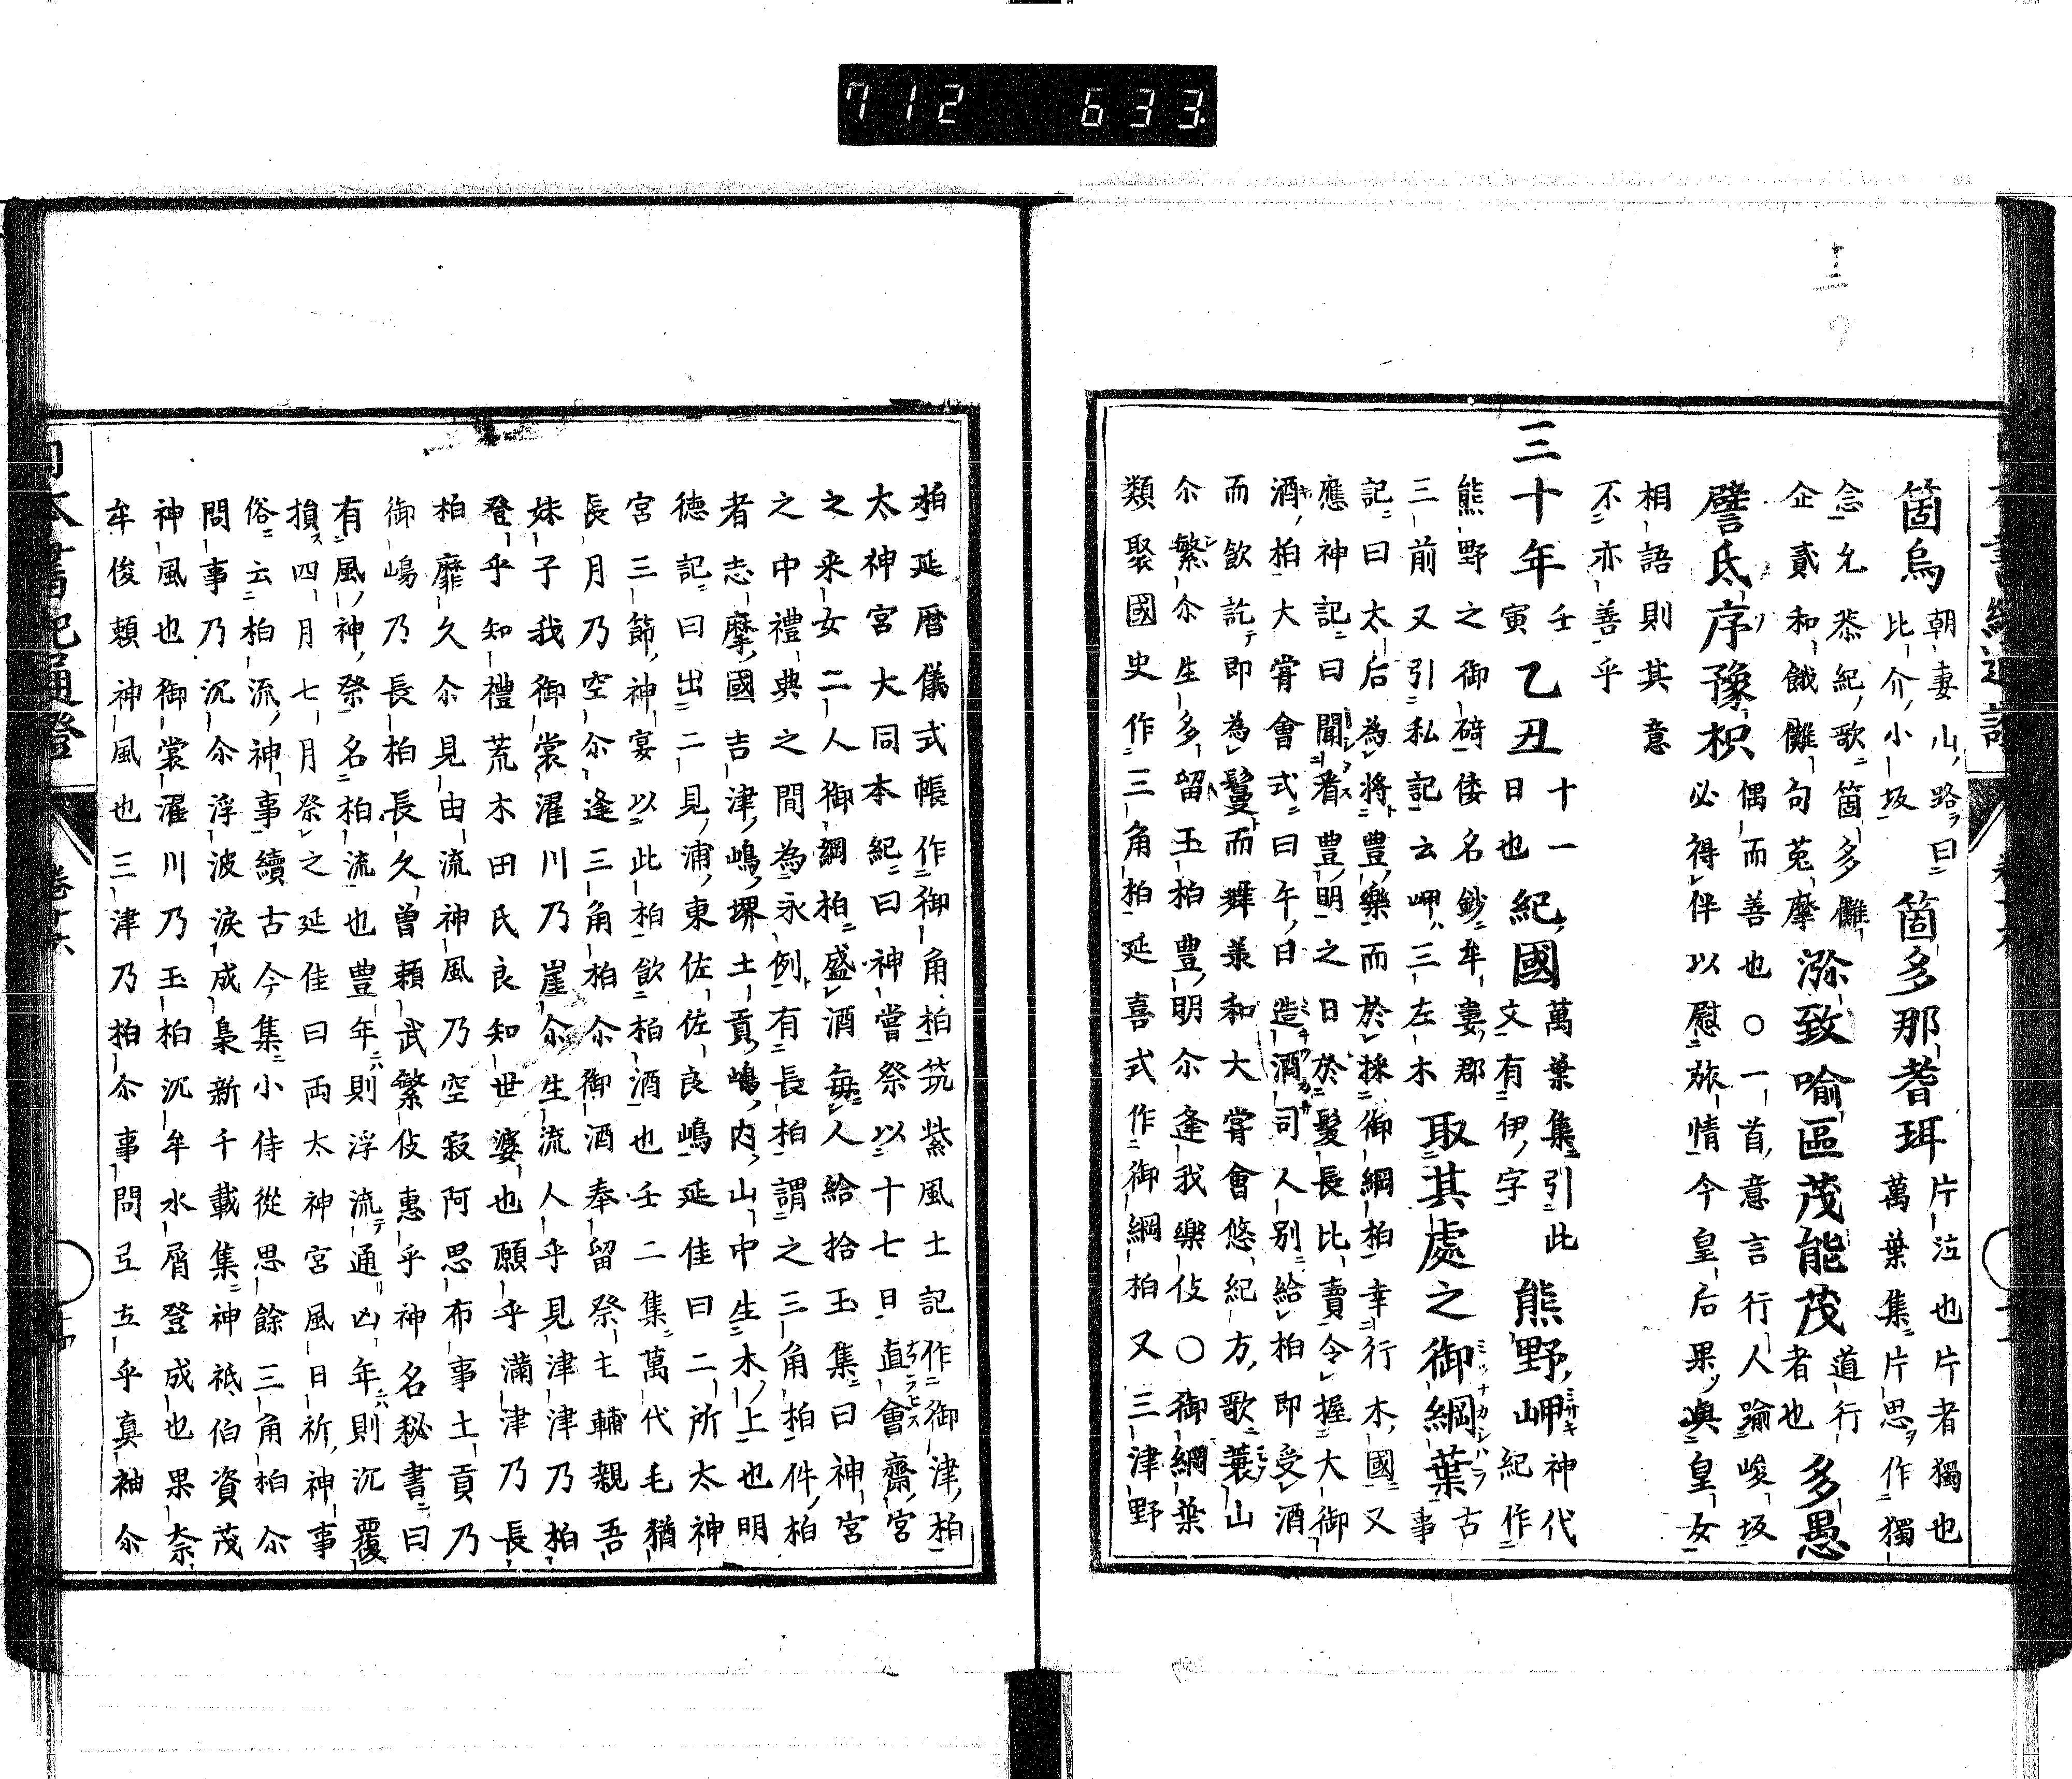 712 633
箇烏朝妻山路曰箇多那耆珥片泣也片者獨也
比介小坂萬葉集片思作獨
念允恭紀歌箇多多儺瀰致喩區茂能茂道行多愚
企貳和餓儺句菟摩者也
譬氐序豫枳偶而善也○一首意言行人踰峻坂
必得伴以慰旅情今皇后果與皇女
相語則其意
不亦善乎
三十年壬寅乙丑十一日也紀國萬葉集引此文有伊字熊野岬神代紀作
熊野之御碕倭名鈔牟婁郡取其處之御綱葉古事
三前又引私記云岬三左木
記曰太后為將豐樂而於採御綱柏幸行木國又
應神記曰聞看豐明之日於髮長比賣令握大御
酒柏大甞會式曰午日造酒司人別給柏即受酒
而飲訖即為鬘而舞兼和大甞會悠紀方歌蓑山
尒繁尒生多留玉柏豐明尒逢我樂伎○御綱葉
類聚國史作三角柏延喜式作御綱柏又三津野
柏延暦儀式帳作御角柏筑紫風土記作御津柏
太神宮大同本紀曰神嘗祭以十七日直會齋宮
之来女二人御綱柏盛酒毎人給拾玉集曰神宮
之中禮典之間為永例有長柏謂之三角柏件柏
者志摩國吉津嶋堺土貢嶋内山中生木上也明
德記曰出二見浦東佐佐良嶋延佳曰二所太神
宮三節神宴以此柏飲柏酒也壬二集萬代毛猶
長月乃空尒逢三角柏尒御酒奉留祭主輔親吾
妹子我御裳濯川乃崖尒生流人乎見津津乃柏
登乎知禮荒木田氏良知世婆也願乎満津乃長
柏靡久尒見由流神風乃空寂阿思布事土貢乃
御嶋乃長柏長久曽頼武繁伎惠乎神名秘書曰
有風神祭名柏流也豊年則浮流通凶年則沉覆
損四月七月祭之延佳曰両太神宮風日祈神事
俗云柏流神事續古今集小侍從思餘三角柏尒
問事乃沉尒浮波淚成梟新千載集神祇伯資茂
神風也御裳濯川乃玉柏沉牟水屑登成也果奈
牟俊頼神風也三津乃柏尒事問弖立乎真袖尒
日本書紀通證 卷十六